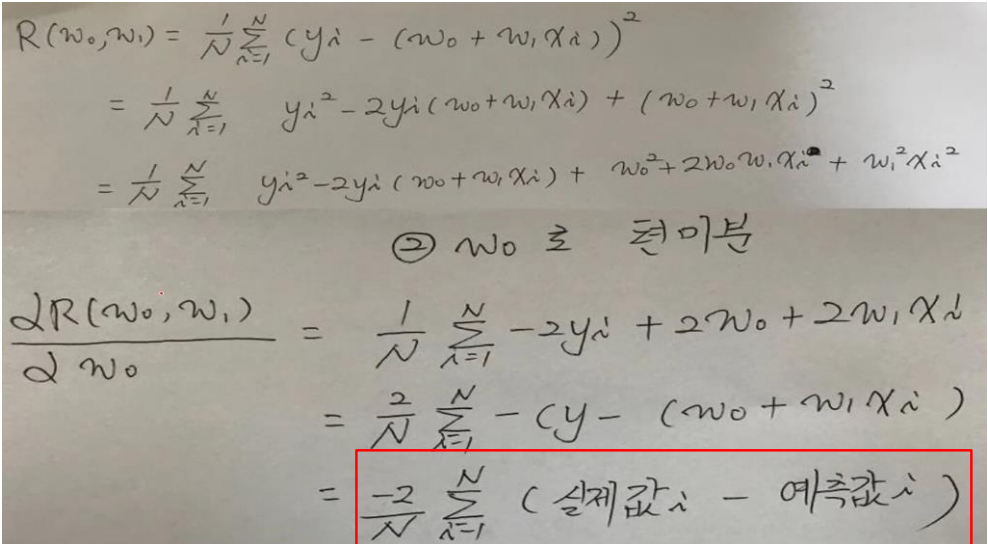 R(w₀,w₁) = 1/N Σᵢ₌₁ᴺ (yi - (w₀ + w₁xi))²
= 1/N Σᵢ₌₁ᴺ yi² - 2yi(w₀ + w₁xi) + (w₀ + w₁xi)²
= 1/N Σᵢ₌₁ᴺ yi² - 2yi(w₀ + w₁xi) + w₀² + 2w₀w₁xi + w₁²xi²
② w₀로 편미분
∂R(w₀,w₁)/∂w₀ = 1/N Σᵢ₌₁ᴺ -2yi + 2w₀ + 2w₁xi
= 2/N Σᵢ₌₁ᴺ -(y - (w₀ + w₁xi)
= -2/N Σᵢ₌₁ᴺ (실제값i - 예측값i)